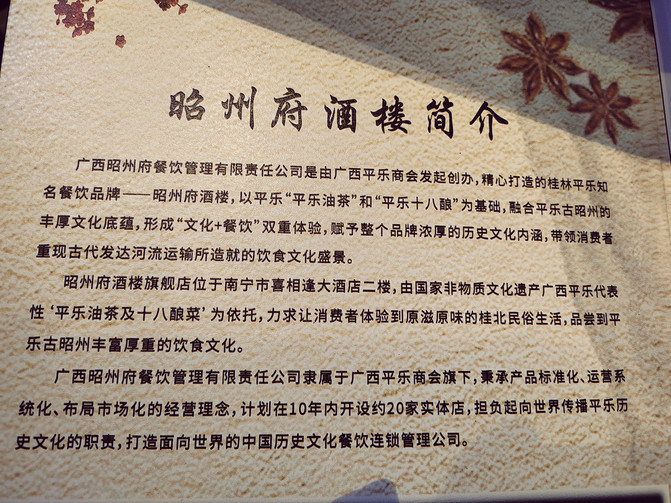 昭州府酒楼简介
广西昭州府餐饮管理有限责任公司是由广西平乐商会发起创办,精心打造的桂林平乐知
名餐饮品牌——昭州府酒楼,以平乐“平乐油茶”和“平乐十八酿”为基础,融合平乐古昭州的
丰厚文化底蕴,形成“文化+餐饮”双重体验,赋予整个品牌浓厚的历史文化内涵,带领消费者
重现古代发达河流运输所造就的饮食文化盛景。
昭州府酒楼旗舰店位于南宁市喜相逢大酒店二楼,由国家非物质文化遗产广西平乐代表
性‘平乐油茶及十八酿菜’为依托,力求让消费者体验到原滋原味的桂北民俗生活,品尝到平
乐古昭州丰富厚重的饮食文化。
广西昭州府餐饮管理有限责任公司隶属于广西平乐商会旗下,秉承产品标准化、运营系
统化、布局市场化的经营理念,计划在10年内开设约20家实体店,担负起向世界传播平乐历
史文化的职责,打造面向世界的中国历史文化餐饮连锁管理公司。